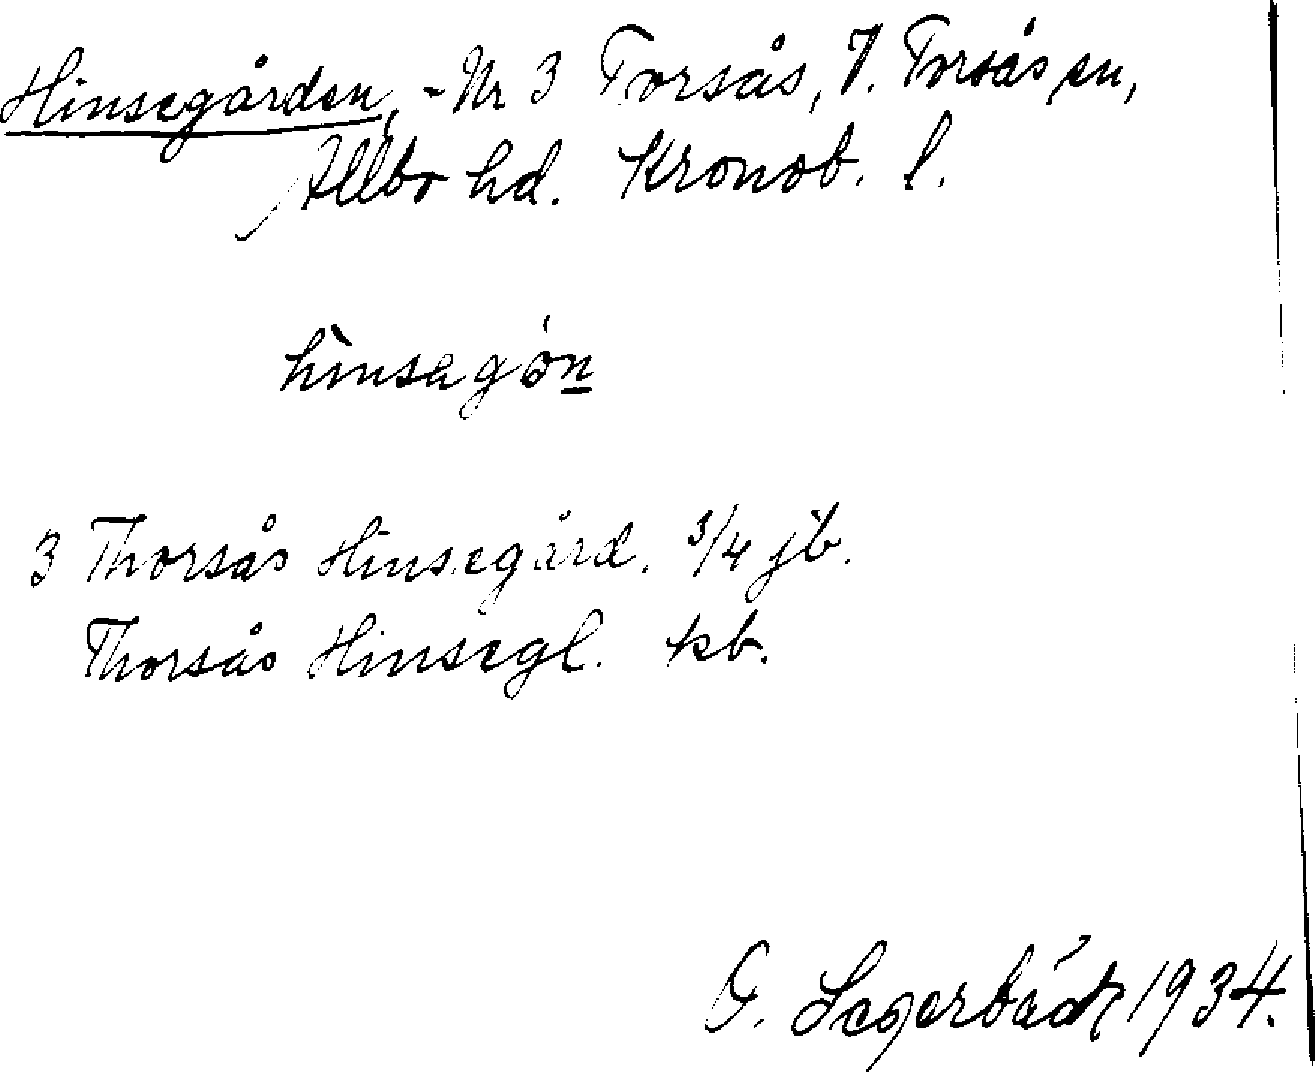 Hinsegården, - Nr 3 Torsås, V. Torsås sn,
Allbo hd. Kronob. l.
hìnsagón
3 Thorsås Hinsegård. 3/4 jb.
Thorsås Hinsegl. kb.
G. Segerbäck 1934.